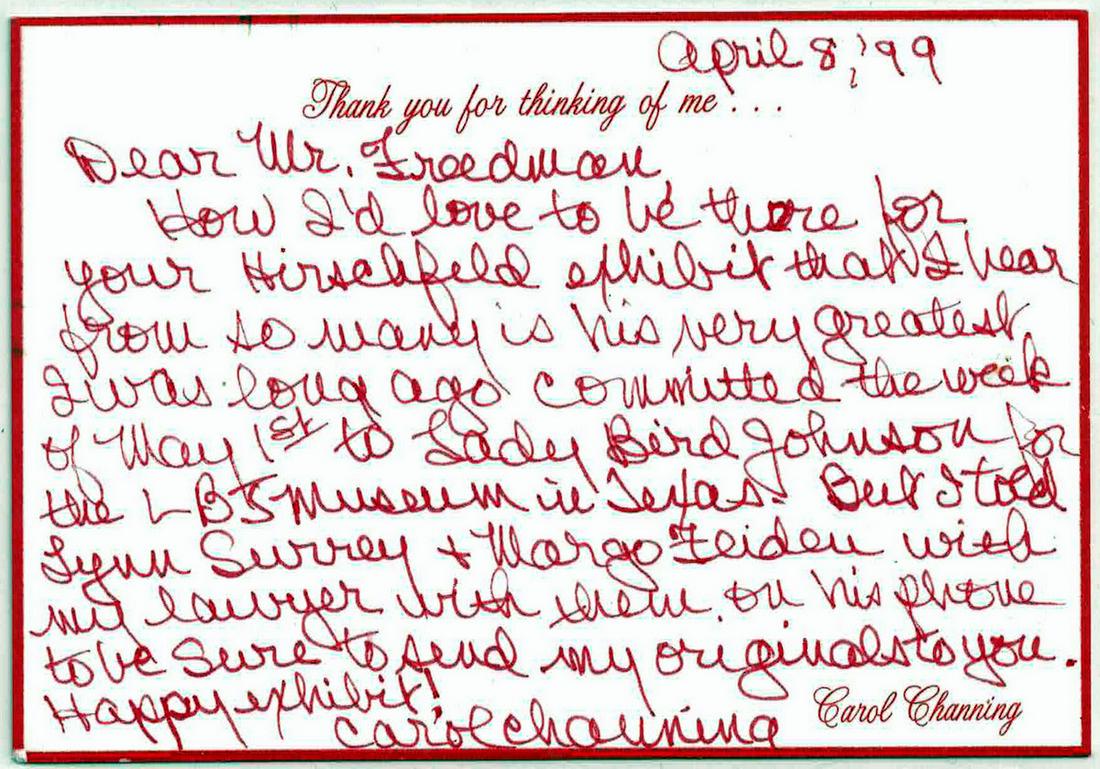 April 8, '99
Thank you for thinking of me . . .
Dear Mr. Freedman
How I'd love to be there for
your Hirschfeld exhibit that I hear
from so many is his very greatest.
I was long ago committed the week
of May 1st to Lady Bird Johnson for
the LBJ Museum in Texas. But I told
Lynn Surrey + Margo Feiden with
my lawyer with them on his phone
to be sure to send my originals to you.
Happy exhibit!
Carol Channing
Carol Channing